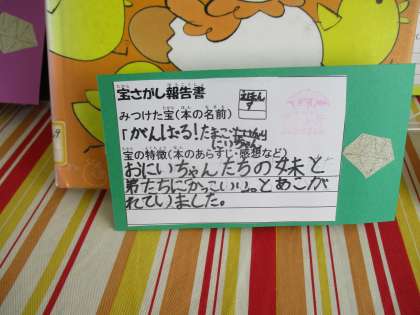 宝さがし報告書
えほん
す
みつけた宝(本の名前)
「がんばる!たまご
にいちゃん
宝の特徴(本のあらすじ・感想など)
おにいちゃんたちの妹と
弟たちにかっこいい。とあこが
れていました。